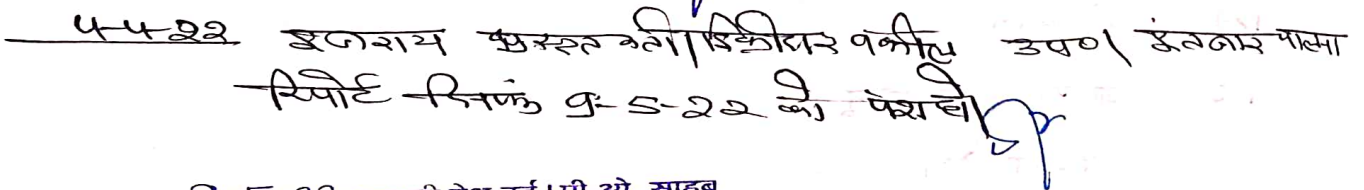 4-4-22 इजराय प्रस्तुत की। डिक्रीदार वकील उप०। इंतजार पालना
रिपोर्ट दिनांक 9-5-22 को पेश हो।
साहब